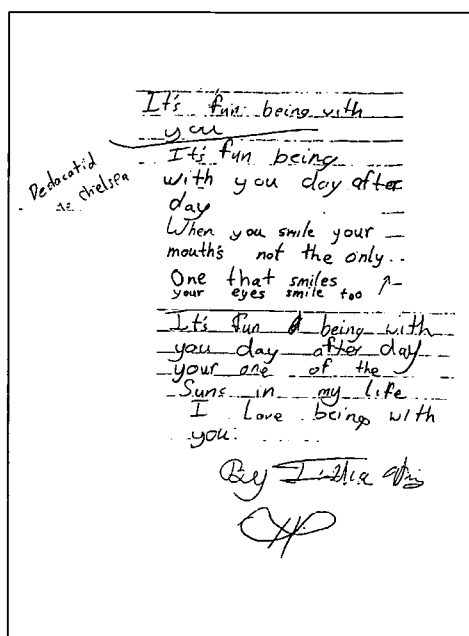 It's fun being with
you
Dedacatid
to Chelsea
It's fun being
with you day after
day
When you smile your
mouth's not the only
One that smiles
your eyes smile too
It's fun being with
you day after day
your one of the
Suns in my life
I love being with
you.
By